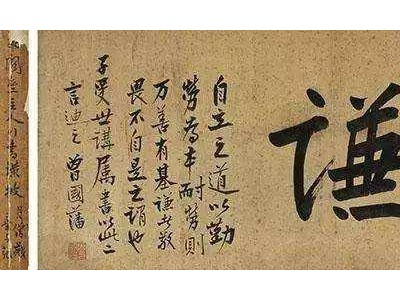 謙
自立之道以勤
勞為本耐勞則
万善有基謙者敬
畏不自是之謂也
子受世講属書以此二
言迪之 曾國藩